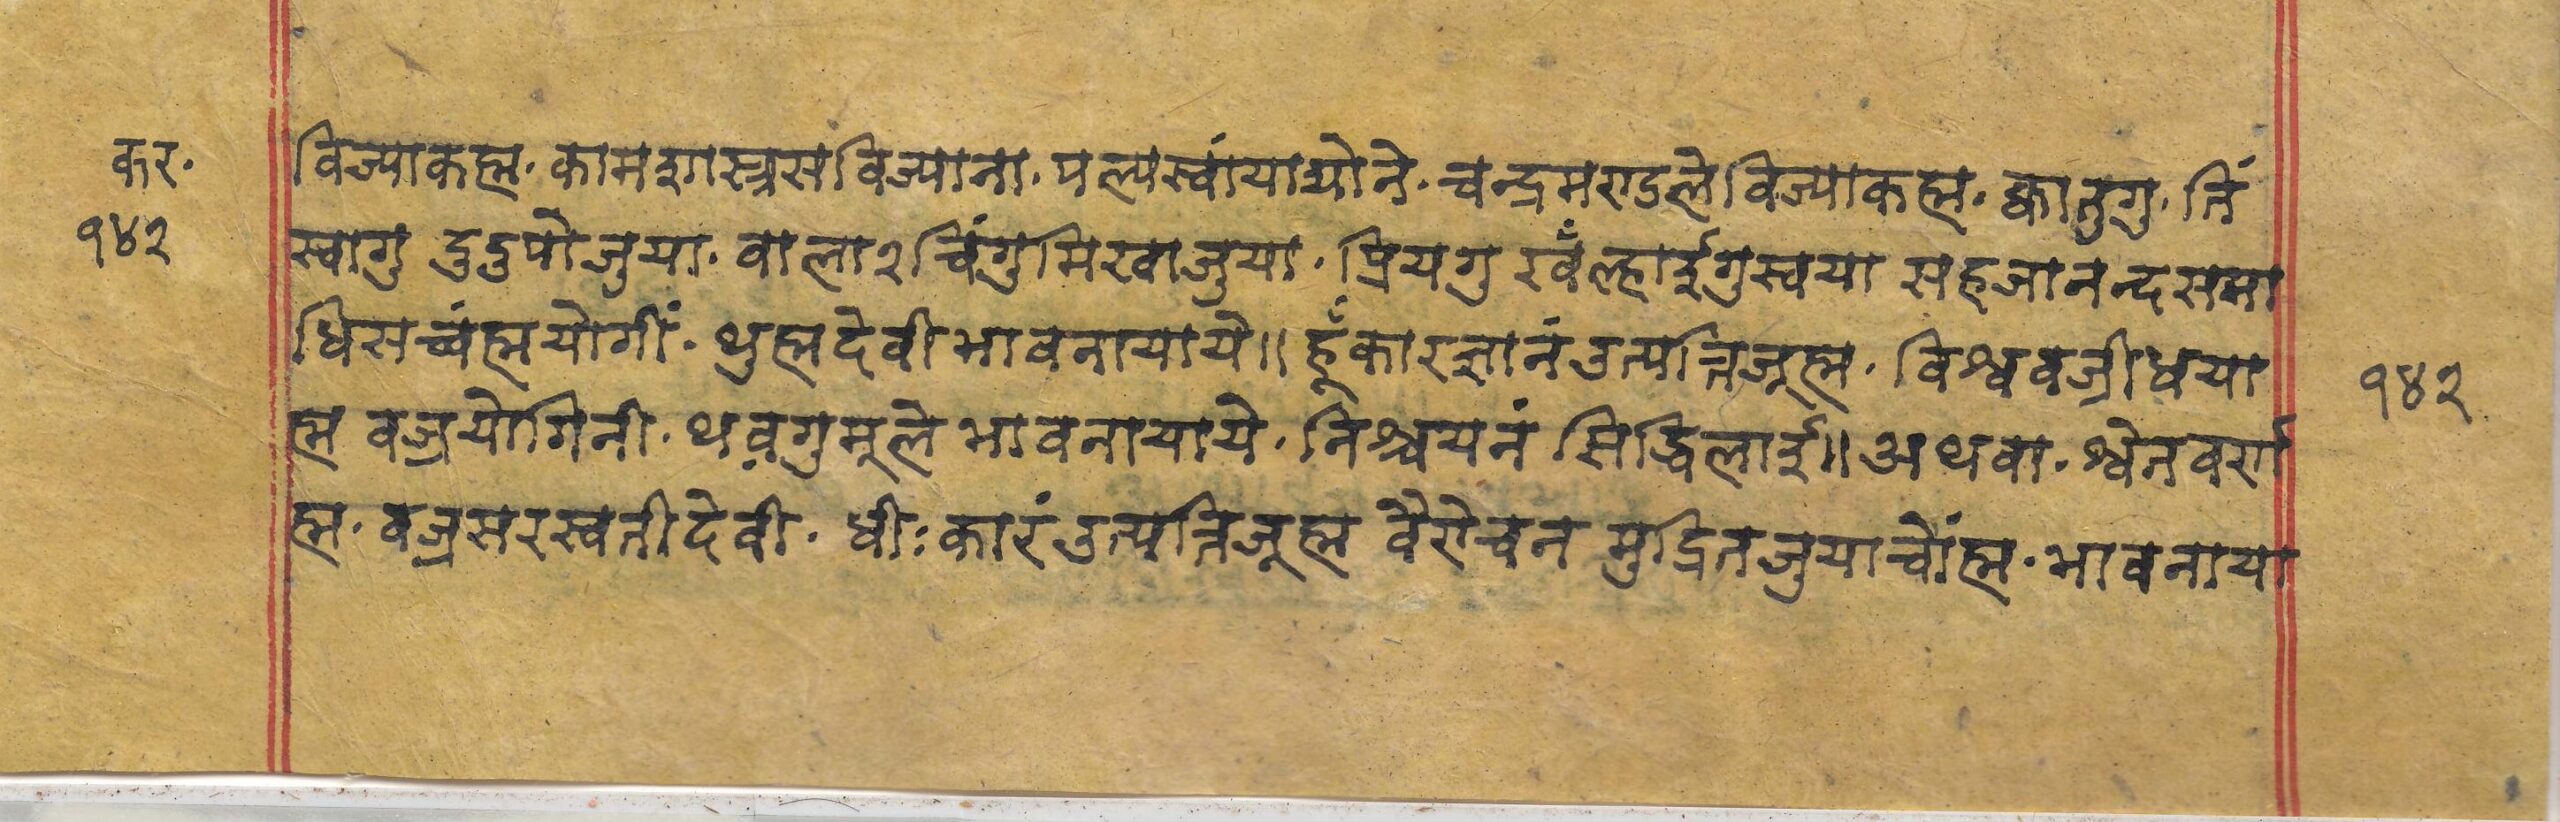 कर·
१४२
विज्याकह्म· कामशास्त्रस विज्याना· पल्यस्वांयाद्योने· चन्द्रमण्डले विज्याकह्म· क्वातुगु· तिं
स्वागु दुदुपोजुया· वाला२ चिंगुमिखाजुया· प्रियगु खँल्हाईगुस्वया सहजानन्दसमा
धिसच्वंह्मयोगीं· थुह्मदेवीभावनायाये॥ हूँकारज्ञानंउत्पत्तिजूह्म· विश्ववज्रीधया
ह्म वज्रयोगिनी· थव़गुमूले भावनायाये· निश्चयनं सिद्धिलाई॥ अथवा· श्वेतवर्ण
ह्म· वज्रसरस्वतीदेवी· धीःकारंउत्पत्तिजूह्म वैरोचन मुद्रितजुयाच्वोंह्म· भावनाया
१४२